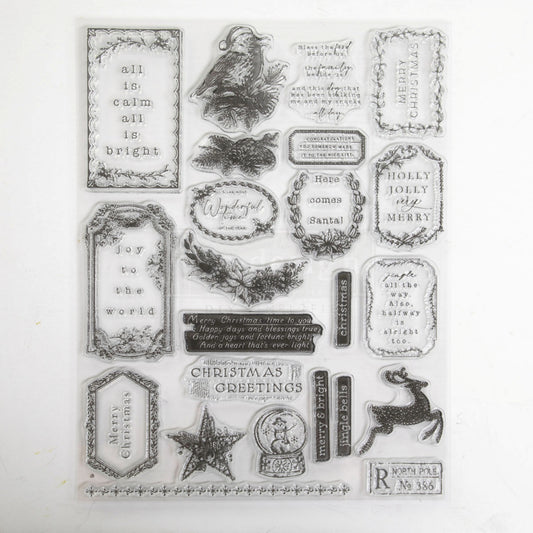 all
is
calm
all
is
bright
Bless the food
before us,
the family
beside us
and this dog that
has been stalking
me and my snacks
all day
MERRY
CHRISTMAS
CONGRATULATIONS
Wonderful
time
OF THE YEAR
Here
comes
Santa!
HOLLY
JOLLY
very
MERRY
joy
to
the
world
Merry Christmas time to you
Happy days and blessings true
Golden joys and fortune bright
And a heart that's ever light
christmas
jingle
all the
way.
Also,
halfway
is
alright
too.
CHRISTMAS
GREETINGS
Merry
Christmas
merry & bright
jingle bells
R
NORTH POLE
№ 386